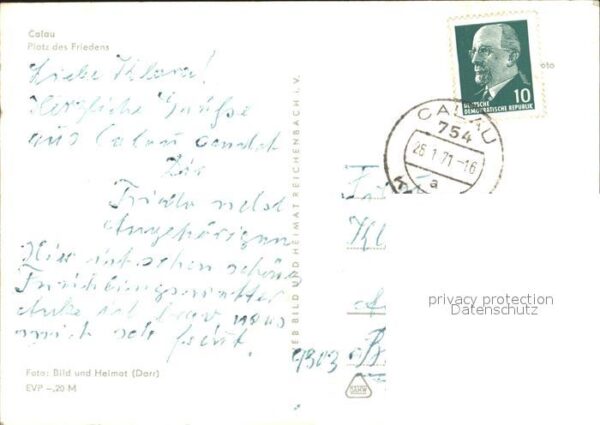 Calau
Platz des Friedens
Liebe Klara!
Herzliche Grüße
aus Calau sendet
Dir
Frieda nebst
Angehörigen
Hier ist schon schöne
Frühlingswetter
mich sehr freut.
Foto: Bild und Heimat (Darr)
EVP –,20 M
BILD UND HEIMAT REICHENBACH I. V.
10
DEUTSCHE
DEMOKRATISCHE REPUBLIK
CALAU
754
26.1.71.-16
a
Kl
9303
privacy protection
Datenschutz